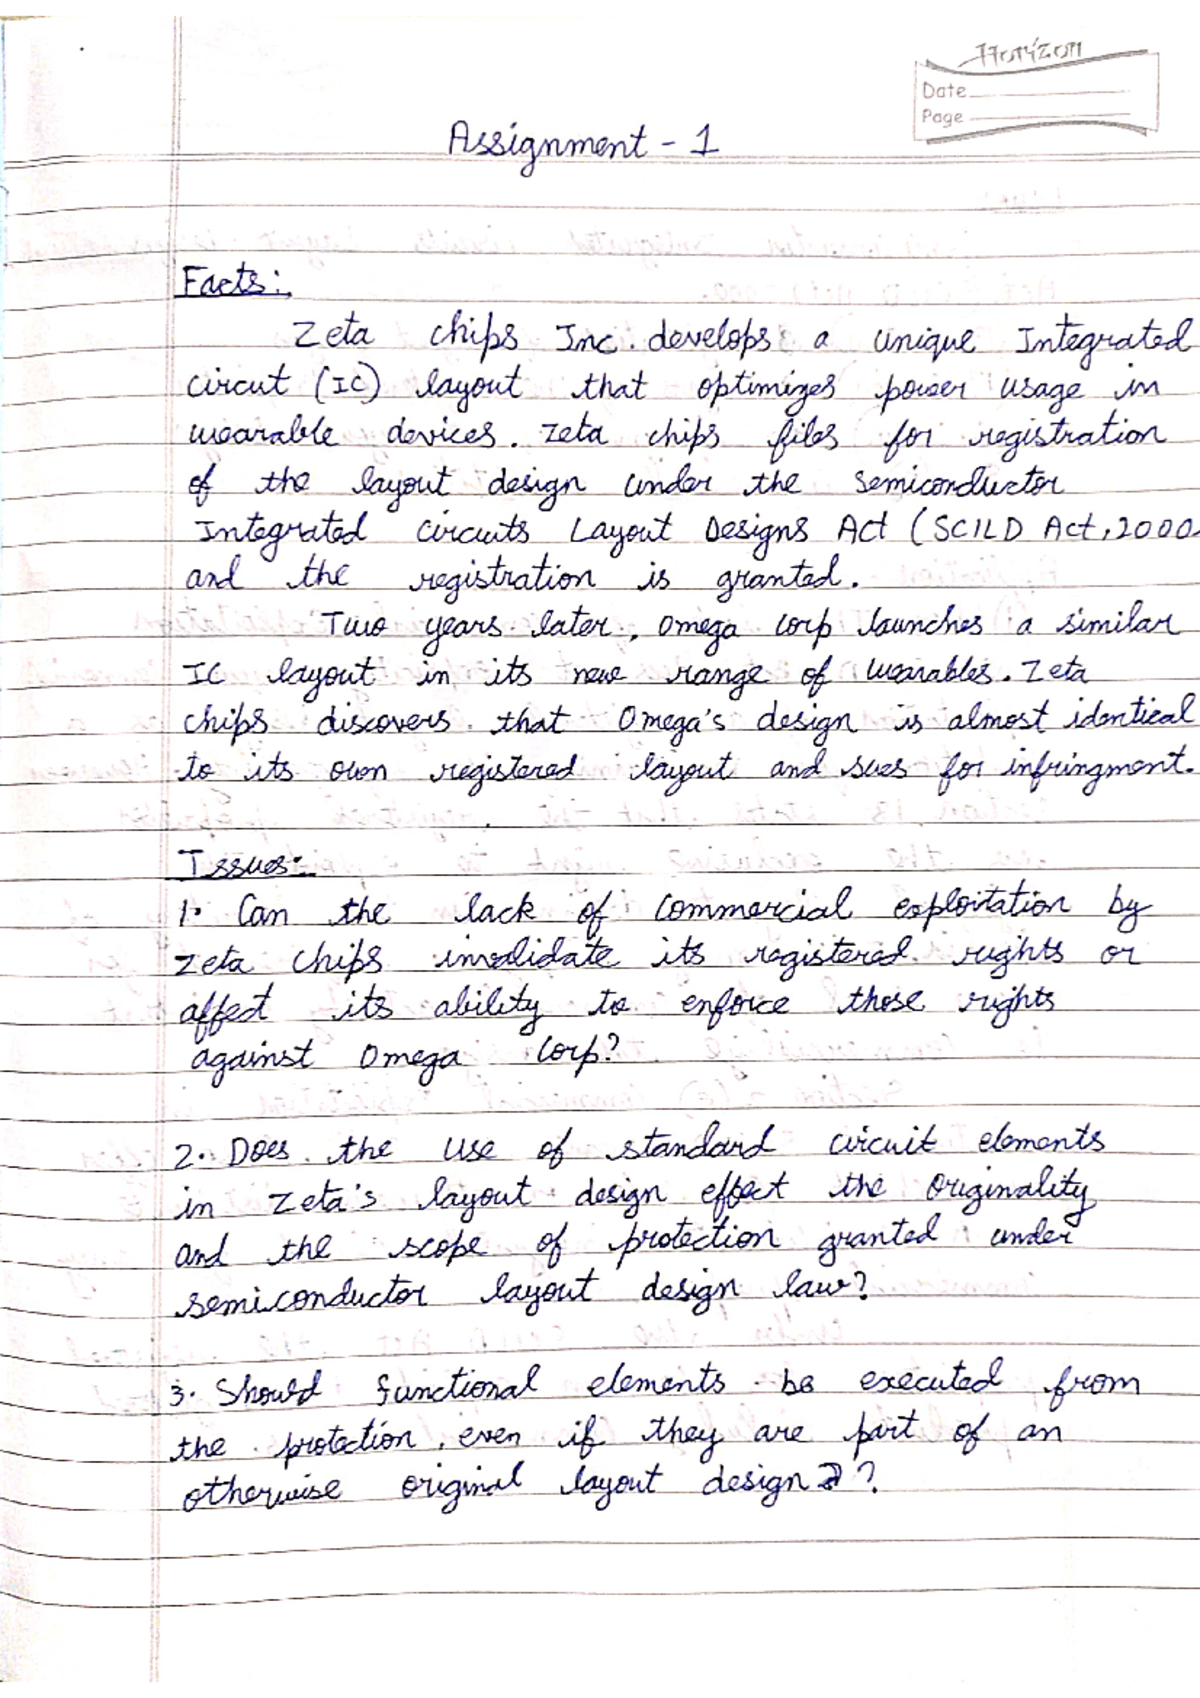 Horizon
Date
Page
Assignment - 1
Facts:
Zeta chips Inc. develops a unique Integrated
circut (IC) layout that optimizes power usage in
wearable devices. Zeta chips files for registration
of the layout design under the semiconductor
Integrated circuits Layout Designs Act (SCILD Act, 2000
and the registration is granted.
Two years later, Omega corp launches a similar
IC layout in its new range of wearables. Zeta
chips discovers that Omega's design is almost identical
to its own registered layout and sues for infringment.
Issues:-
1. Can the lack of commercial exploitation by
Zeta chips invalidate its registered rights or
affect its ability to enforce those rights
against Omega Corp?
2. Does the use of standard circuit elements
in Zeta's layout design effect the originality
and the scope of protection granted under
semiconductor layout design law?
3. Should functional elements be executed from
the protection, even if they are part of an
otherwise original layout design?